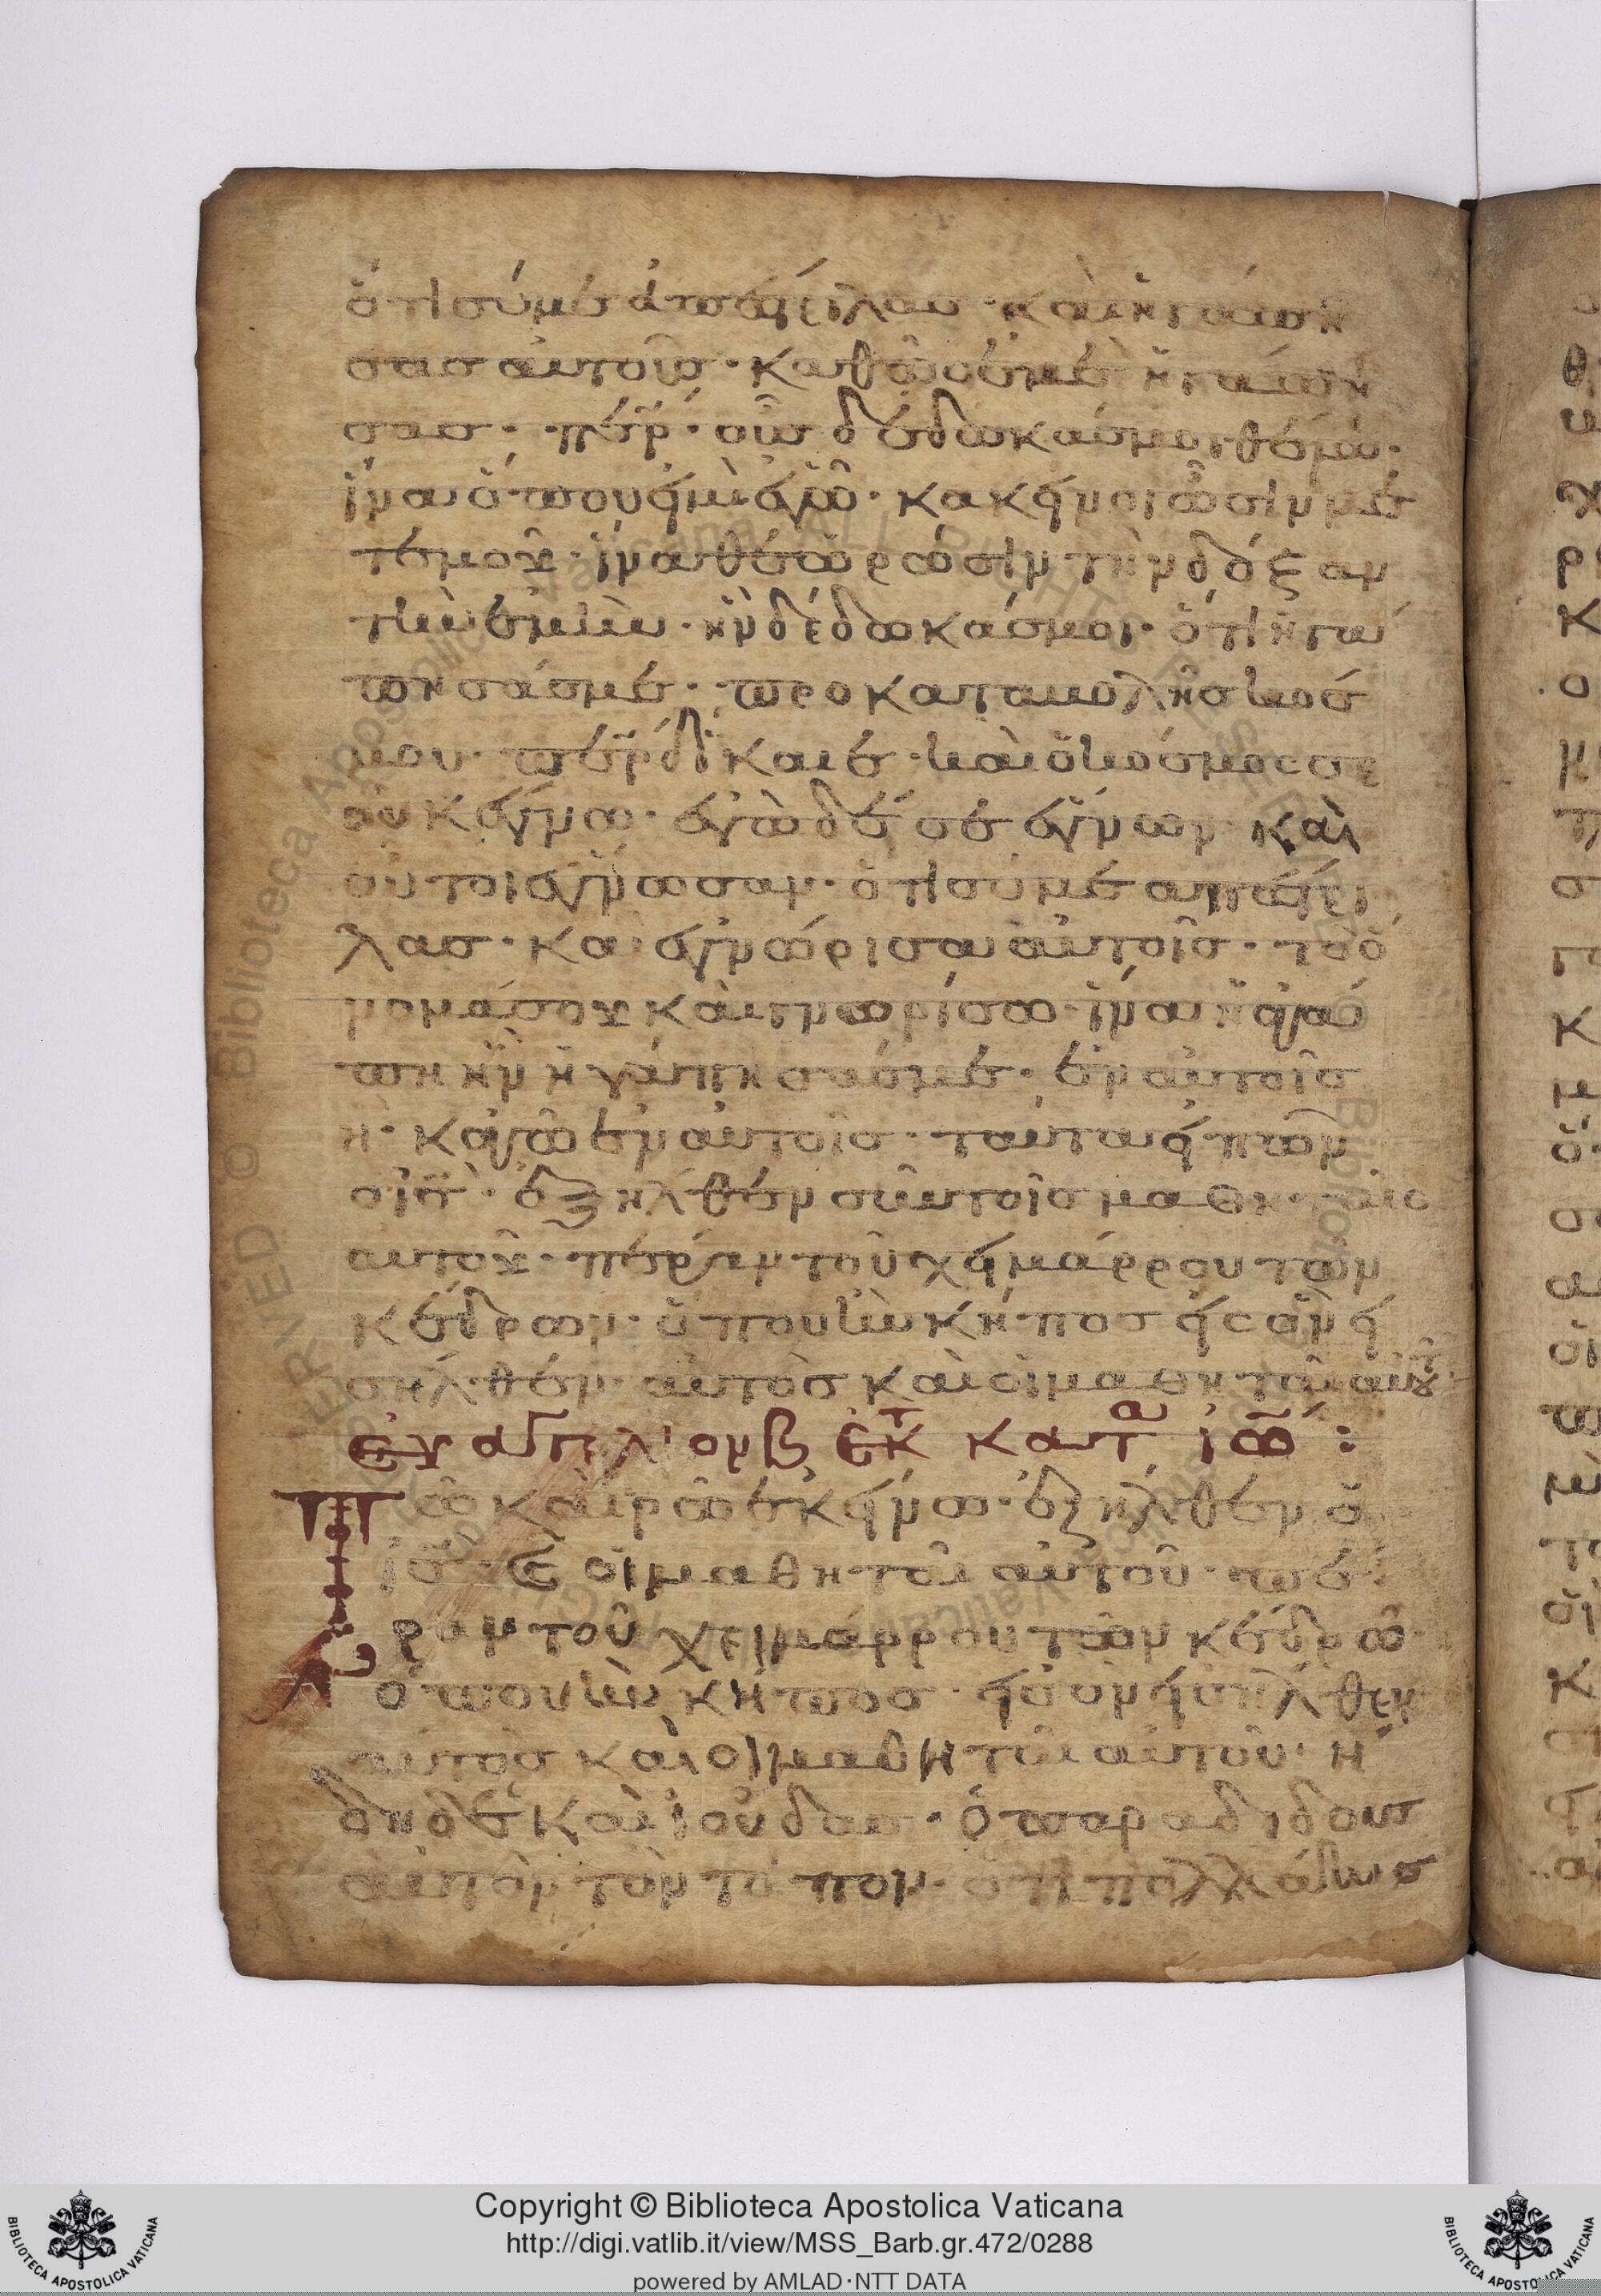 ὅτι σύ με ἀπέστειλασ · καὶ ἠγάπη
σασ αὐτοῖσ · καθὼσ ἐμὲ ἠγάπη
σασ · περ · οὓσ δέδωκάσ μοι θέλω ·
ἵνα ὅπου ἠμὶ ἐγὼ · κακῆνοι ὦσιν με
τ' ἐμοῦ · ἵνα θεωρῶσιν τὴν δόξαν
τὴν ἐμὴν · ἣν δέδωκάσ μοι · ὅτι ἠγά
πησάσ με · προ καταβολῆσ κοσ
μου · περ δίκαιε · καὶ ὁ κόσμοσ σε
οὐκ ἔγνω · ἐγὼ δέ σε ἔγνων καὶ
οὗτοι ἔγνωσαν · ὅτι σύ με απέστει
λασ · και ἐγνώρισα αὐτοῖσ · τὸ ὄ
νομά σου καὶ γνωρίσω · ἵνα ἡ ἀγά
πη ἣν ἠγάπησάσ με · ἐν αὐτοῖσ
η · καγὼ ἐν αὐτοῖσ · ταῦτα ἠπὼν
ὁ ισ · ἐξῆλθεν σὺν τοῖσ μαθη
αὐτοῦ · πέραν τοῦ χημάρρου τῶν
κέδρων · ὅπου ἦν κῆποσ ἠσ ὃν ἠ
σῆλθεν · αὐτὸσ καὶ οἱ μαθηταὶ αὐτου
ευαγγελιον β εκ κατα ιω :
Τῶ καιρῶ ἐκήνω · ἐξῆλθεν ὁ
ισ · καὶ οἱ μαθηταὶ αὐτοῦ · πέ
ραν τοῦ χειμάρρου τῶν κέδρω
ὅπου ἦν κῆποσ · ἠσ ὃν ἠσῆλθεν
αὐτὸσ καὶ οἱ μαθηταὶ αὐτοῦ · ἤ
δη δὲ καὶ ἰούδασ · ὁ παραδιδουσ
αὐτὸν τὸν τόπον · ὅτι πολλάκισ
Copyright © Biblioteca Apostolica Vaticana
http://digi.vatlib.it/view/MSS_Barb.gr.472/0288
powered by AMLAD·NTT DATA